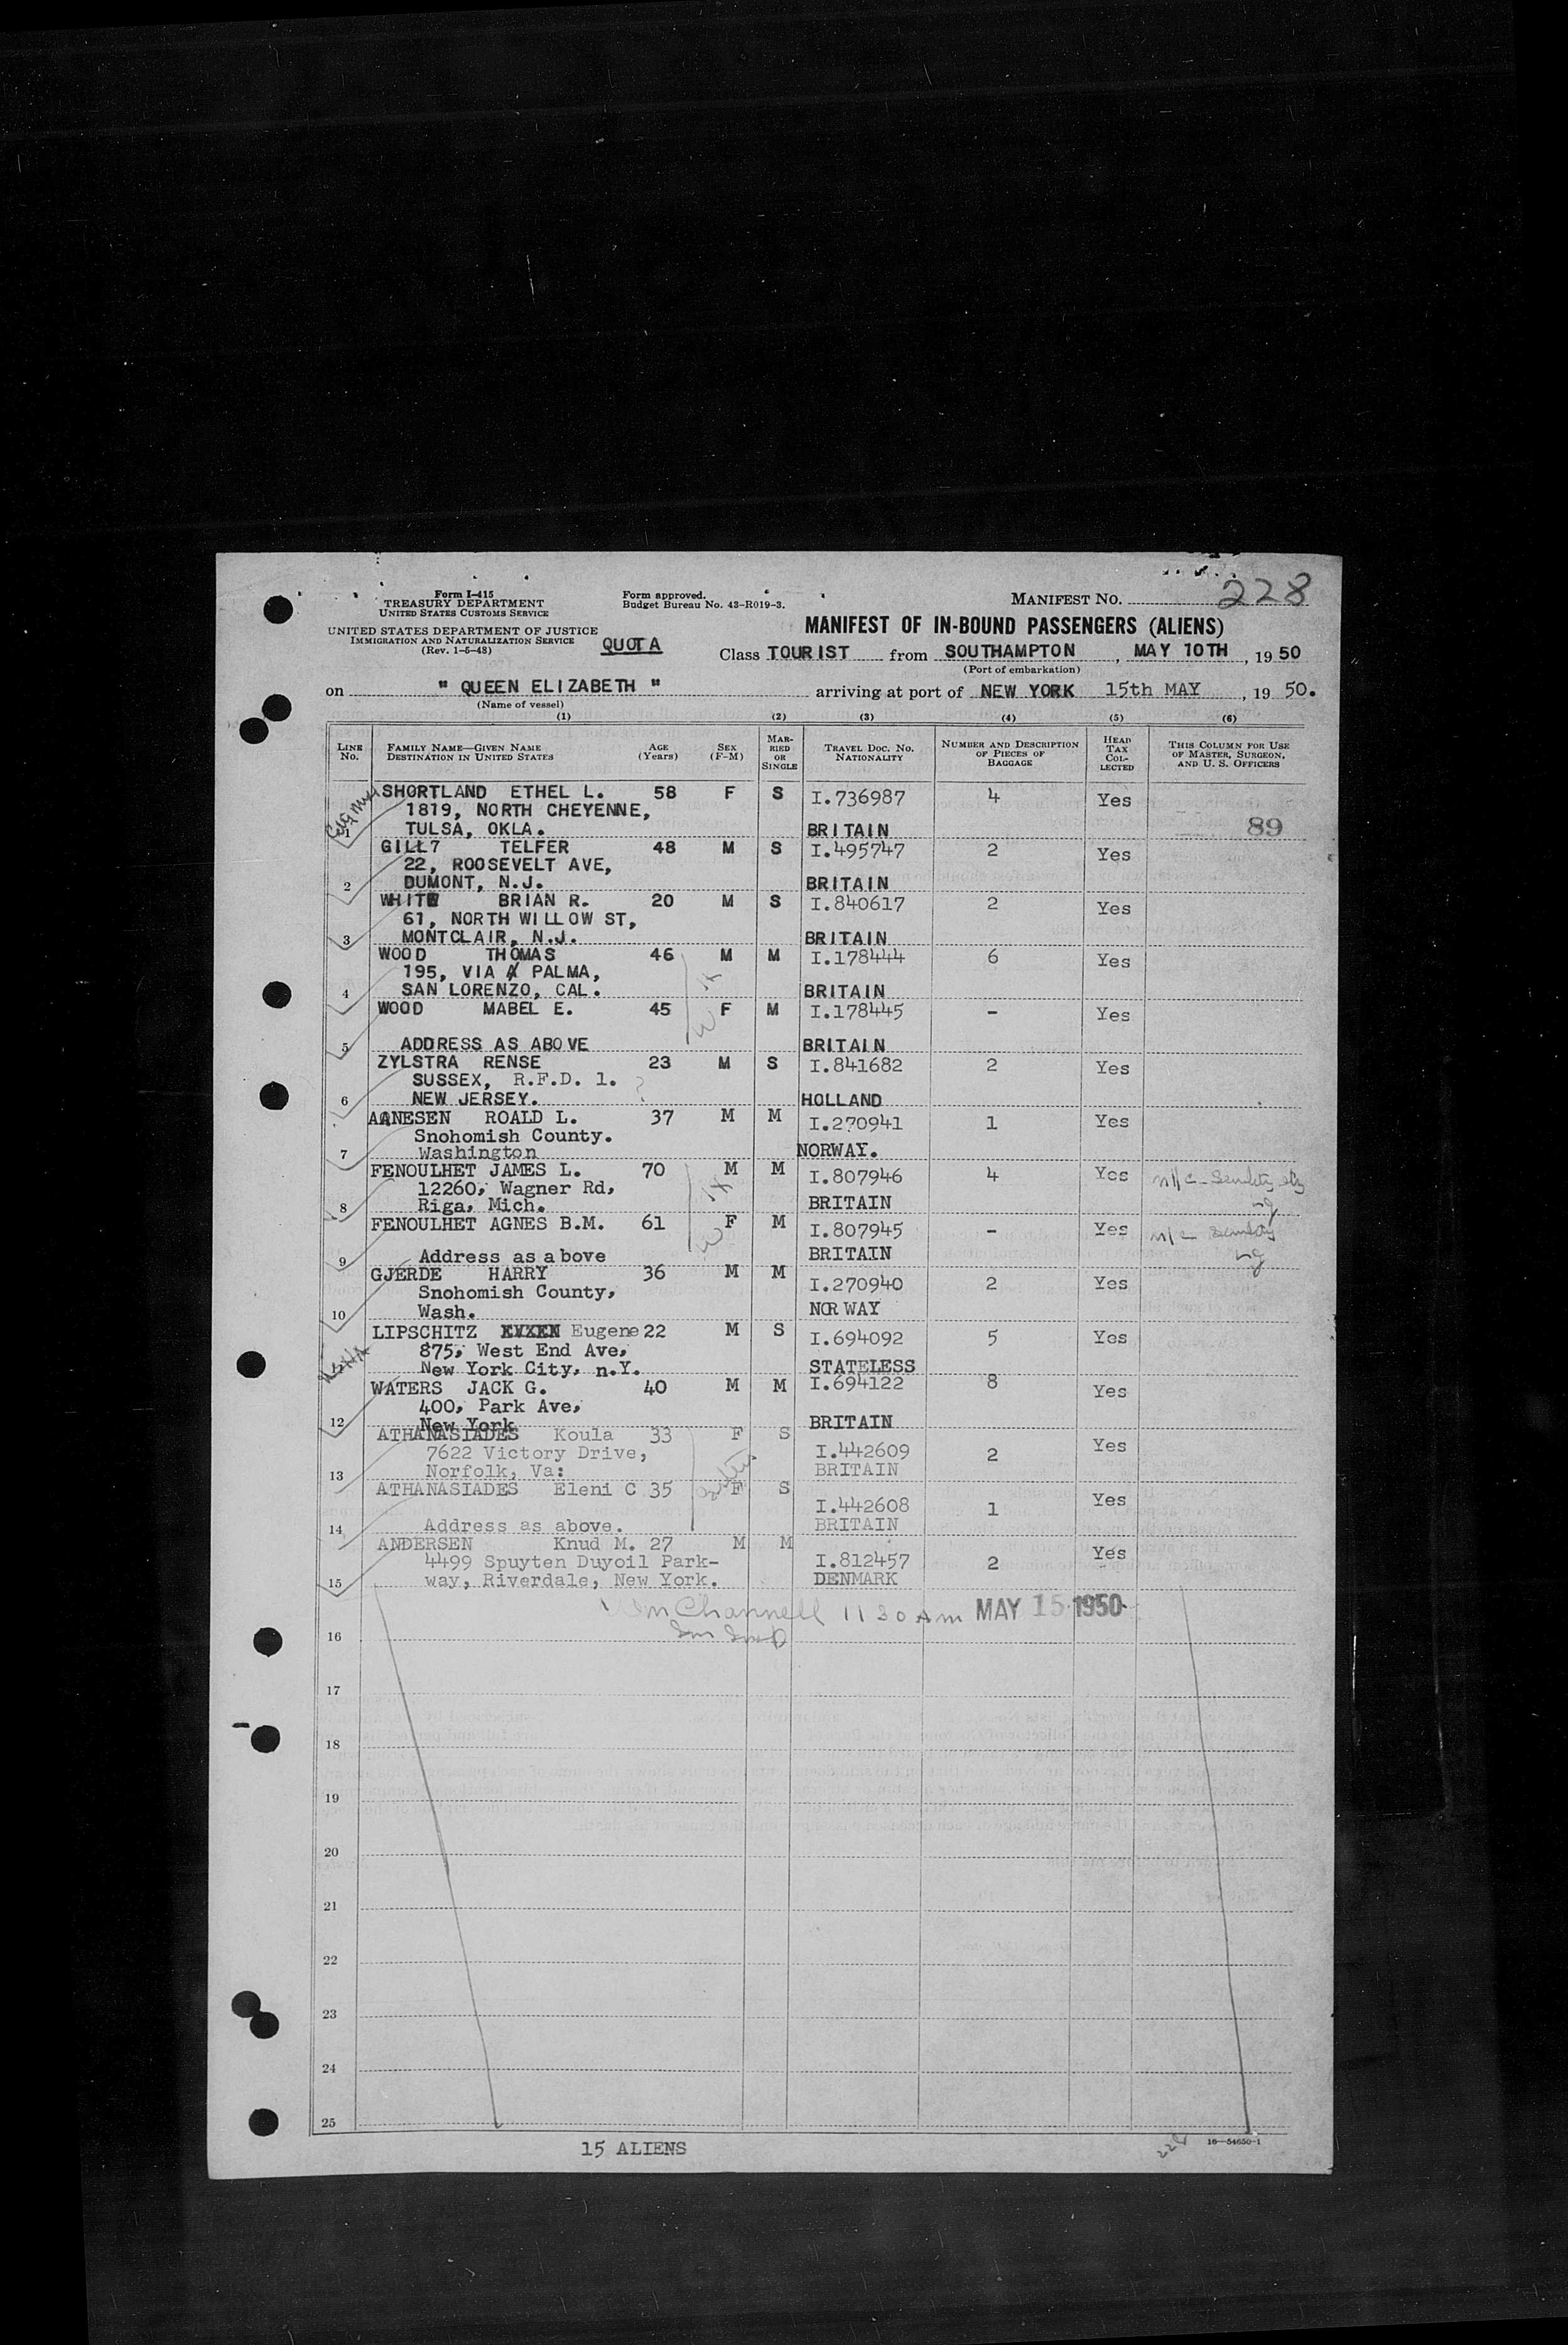 Form I-415
TREASURY DEPARTMENT
UNITED STATES CUSTOMS SERVICE
UNITED STATES DEPARTMENT OF JUSTICE
IMMIGRATION AND NATURALIZATION SERVICE
(Rev. 1-5-48)
QUOTA
Form approved.
Budget Bureau No. 43-R019-3.
MANIFEST NO. 228
MANIFEST OF IN-BOUND PASSENGERS (ALIENS)
Class TOURIST from SOUTHAMPTON, MAY 10TH, 1950
(Port of embarkation)
on " QUEEN ELIZABETH " arriving at port of NEW YORK 15th MAY, 1950.
(Name of vessel)
(1) (2) (3) (4) (5) (6)
LINE NO. FAMILY NAME—GIVEN NAME DESTINATION IN UNITED STATES AGE (Years) SEX (F-M) MARRIED OR SINGLE TRAVEL DOC. NO. NATIONALITY NUMBER AND DESCRIPTION OF PIECES OF BAGGAGE HEAD TAX COLLECTED THIS COLUMN FOR USE OF MASTER, SURGEON, AND U. S. OFFICERS
SHORTLAND ETHEL L. 58 F S I.736987 4 Yes
1819, NORTH CHEYENNE,
1 TULSA, OKLA. BRITAIN 89
GILL7 TELFER 48 M S I.495747 2 Yes
22, ROOSEVELT AVE,
2 DUMONT, N.J. BRITAIN
WHITE BRIAN R. 20 M S I.840617 2 Yes
61, NORTH WILLOW ST,
3 MONTCLAIR, N.J. BRITAIN
WOOD THOMAS 46 M M I.178444 6 Yes
195, VIA A PALMA,
4 SAN LORENZO, CAL. BRITAIN
WOOD MABEL E. 45 F M I.178445 - Yes
5 ADDRESS AS ABOVE BRITAIN
ZYLSTRA RENSE 23 M S I.841682 2 Yes
SUSSEX, R.F.D. 1. ?
6 NEW JERSEY. HOLLAND
AANESEN ROALD L. 37 M M I.270941 1 Yes
Snohomish County.
7 Washington NORWAY.
FENOULHET JAMES L. 70 M M I.807946 4 Yes
12260, Wagner Rd,
8 Riga, Mich. BRITAIN
FENOULHET AGNES B.M. 61 F M I.807945 - Yes
9 Address as above BRITAIN
GJERDE HARRY 36 M M I.270940 2 Yes
Snohomish County,
10 Wash. NORWAY
LIPSCHITZ Eugene 22 M S I.694092 5 Yes
875, West End Ave,
New York City, n.Y. STATELESS
WATERS JACK G. 40 M M I.694122 8 Yes
400, Park Ave,
12 New York BRITAIN
ATHANASIADES Koula 33 F S I.442609 2 Yes
7622 Victory Drive,
13 Norfolk, Va: BRITAIN
ATHANASIADES Eleni C 35 F S I.442608 1 Yes
14 Address as above. BRITAIN
ANDERSEN Knud M. 27 M M I.812457 2 Yes
4499 Spuyten Duyoil Park-
15 way, Riverdale, New York. DENMARK
Channell 11 30 Am MAY 15 1950
16
17
18
19
20
21
22
23
24
25
15 ALIENS
16—54650-1